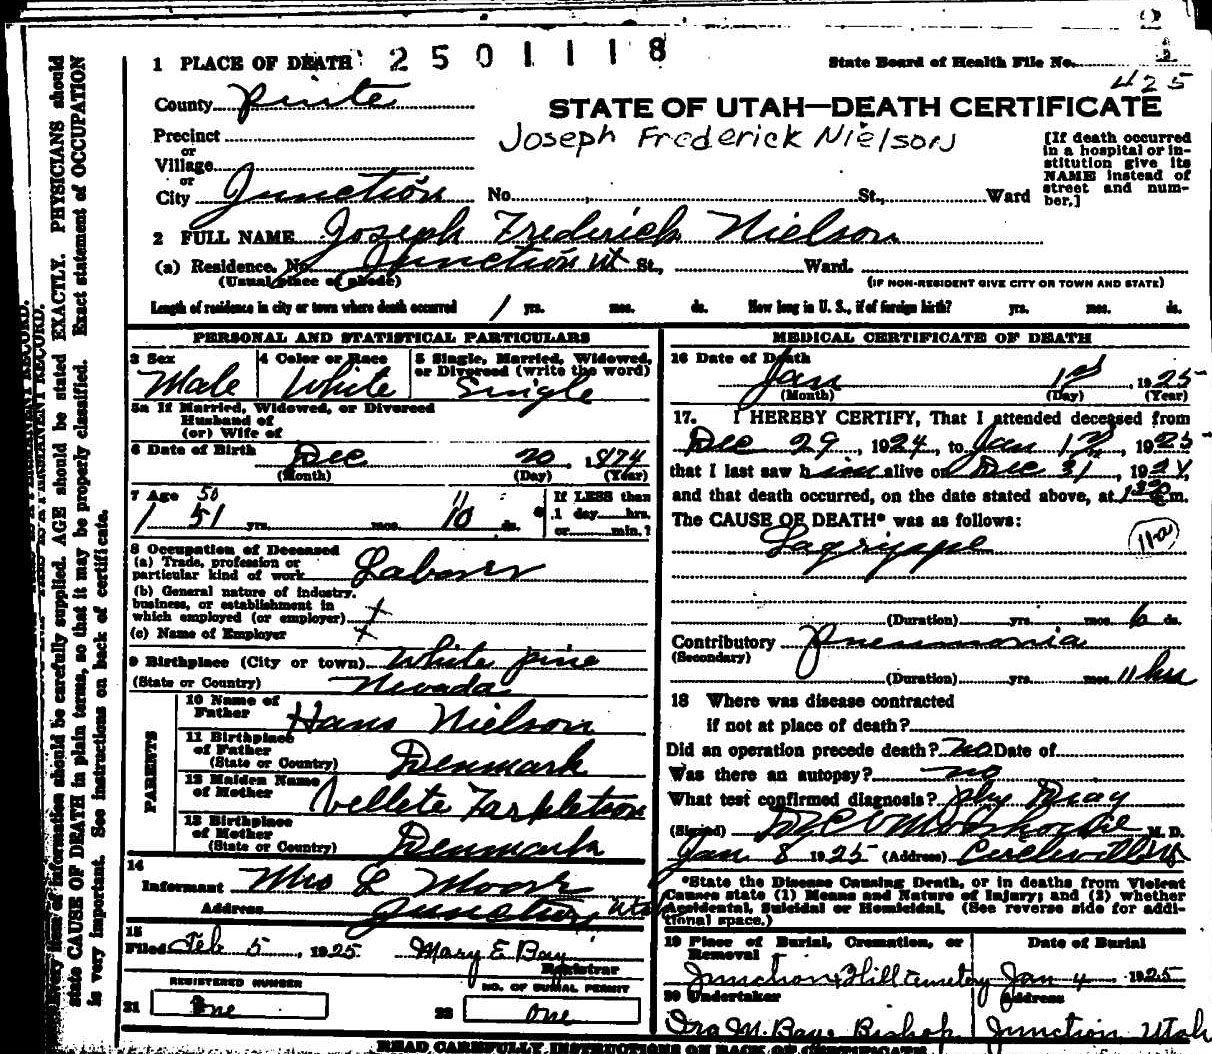 1 PLACE OF DEATH 2501118 State Board of Health File No. 425
County Piute
STATE OF UTAH—DEATH CERTIFICATE
Precinct
or
Village
or
City Junction No. St., Ward
Joseph Frederick Nielson
[If death occurred in a hospital or institution give its NAME instead of street and number.]
2 FULL NAME Joseph Frederick Nielson
(a) Residence, No. Junction Ut St., Ward.
(Usual place of abode) (IF NON-RESIDENT GIVE CITY OR TOWN AND STATE)
Length of residence in city or town where death occurred 1 yrs. mos. ds. How long in U. S., if of foreign birth? yrs. mos. ds.
PERSONAL AND STATISTICAL PARTICULARS
3 Sex Male
4 Color or Race White
5 Single, Married, Widowed, or Divorced (write the word) Single
5a If Married, Widowed, or Divorced
Husband of
(or) Wife of
6 Date of Birth Dec 20, 1874
(Month) (Day) (Year)
7 Age 50 11
51 yrs. mos. 10 ds.
If LESS than
1 day hrs.
or min.?
8 Occupation of Deceased
(a) Trade, profession or
particular kind of work Laborer
(b) General nature of industry,
business, or establishment in
which employed (or employer)
(c) Name of Employer
9 Birthplace (City or town) White pine
(State or Country) Nevada
PARENTS
10 Name of
Father Hans Nielson
11 Birthplace
of Father
(State or Country) Denmark
12 Maiden Name
of Mother Vellete Tarpletson
13 Birthplace
of Mother
(State or Country) Denmark
14
Informant Mrs L Moore
Address Junction, Utah
15
Filed Feb 5, 1925 Mary E Bay
Registrar
REGISTERED NUMBER
21 One
NO. OF BURIAL PERMIT
22 One
MEDICAL CERTIFICATE OF DEATH
16 Date of Death
Jan 1st, 1925
(Month) (Day) (Year)
17. I HEREBY CERTIFY, That I attended deceased from
Dec 29, 1924, to Jan 1st, 1925
that I last saw him alive on Dec 31, 1924,
and that death occurred, on the date stated above, at 1:30 m.
The CAUSE OF DEATH* was as follows:
Lagrippe 11-a
(Duration) yrs. mos. 6 ds.
Contributory Pneumonia
(Secondary)
(Duration) yrs. mos. 11 hrs
18 Where was disease contracted
if not at place of death?
Did an operation precede death? no Date of
Was there an autopsy? no
What test confirmed diagnosis? Phy
(Signed) M. D.
Jan 8 1925 (Address) Circleville Ut
*State the Disease Causing Death, or in deaths from Violent
Causes state (1) Means and Nature of Injury; and (2) whether
Accidental, Suicidal or Homicidal. (See reverse side for addi-
tional space.)
19 Place of Burial, Cremation, or
Removal
Junction Hill Cemetery
Date of Burial
Jan 4 1925
20 Undertaker
Ira M. Bay Bishop
Address
Junction Utah
READ CAREFULLY INSTRUCTIONS ON BACK OF CERTIFICATE
Every item of information should be carefully supplied. AGE should be stated EXACTLY. PHYSICIANS should
state CAUSE OF DEATH in plain terms, so that it may be properly classified. Exact statement of OCCUPATION
is very important. See instructions on back of certificate.